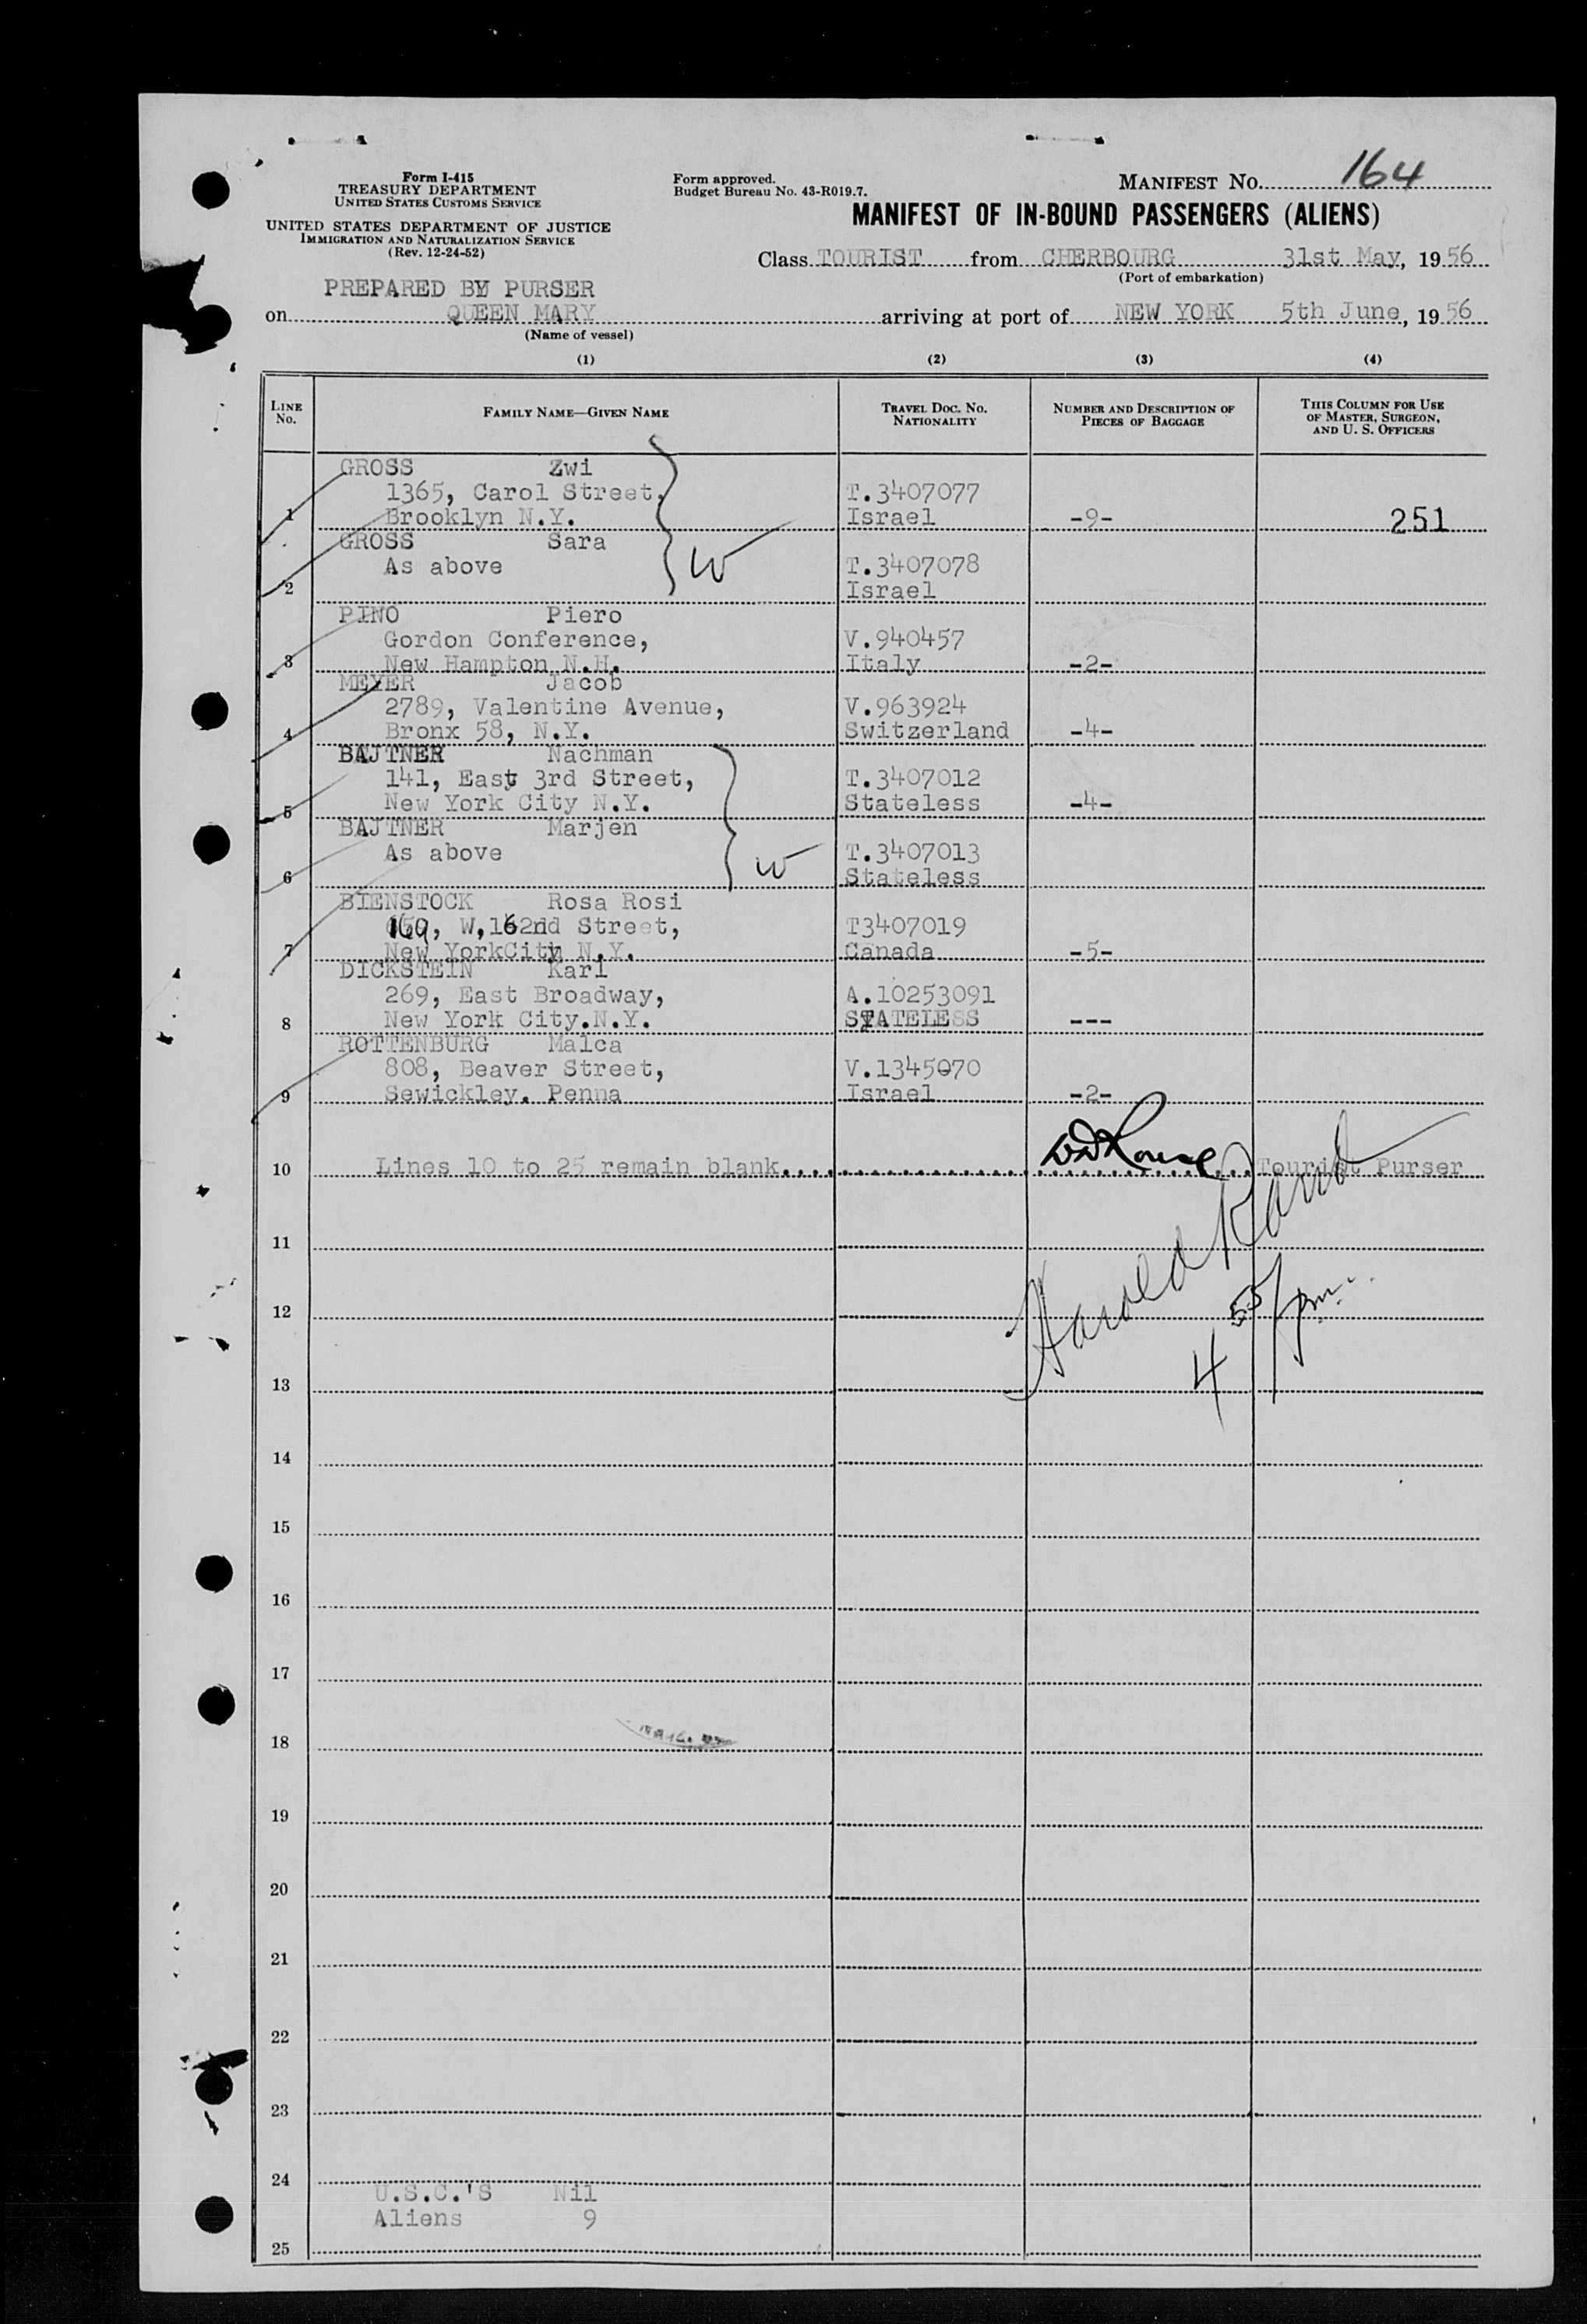 Form I-415
TREASURY DEPARTMENT
UNITED STATES CUSTOMS SERVICE
UNITED STATES DEPARTMENT OF JUSTICE
IMMIGRATION AND NATURALIZATION SERVICE
(Rev. 12-24-52)
Form approved.
Budget Bureau No. 43-R019.7.
MANIFEST NO. 164
MANIFEST OF IN-BOUND PASSENGERS (ALIENS)
Class TOURIST from CHERBOURG 31st May, 1956
(Port of embarkation)
PREPARED BY PURSER
on QUEEN MARY arriving at port of NEW YORK 5th June, 1956
(Name of vessel)
(1) (2) (3) (4)
LINE No. FAMILY NAME—GIVEN NAME TRAVEL DOC. NO. NATIONALITY NUMBER AND DESCRIPTION OF PIECES OF BAGGAGE THIS COLUMN FOR USE OF MASTER, SURGEON, AND U. S. OFFICERS
GROSS Zwi
1365, Carol Street, T.3407077
1 Brooklyn N.Y. Israel -9- 251
GROSS Sara
As above T.3407078
2 Israel
W
PINO Piero
Gordon Conference, V.940457
3 New Hampton N.H. Italy -2-
MEYER Jacob
2789, Valentine Avenue, V.963924
4 Bronx 58, N.Y. Switzerland -4-
BAJTNER Nachman
141, East 3rd Street, T.3407012
5 New York City N.Y. Stateless -4-
BAJTNER Marjen
As above T.3407013
6 Stateless
W
BIENSTOCK Rosa Rosi
W,162nd Street, T3407019
7 New YorkCity N.Y. Canada -5-
DICKSTEIN Karl
269, East Broadway, A.10253091
8 New York City.N.Y. STATELESS ---
ROTTENBURG Malca
808, Beaver Street, V.1345070
9 Sewickley. Penna Israel -2-
10 Lines 10 to 25 remain blank.... Tourist Purser
11
Harold
12
4 55 pm
13
14
15
16
17
18
19
20
21
22
23
24
U.S.C.'S Nil
Aliens 9
25